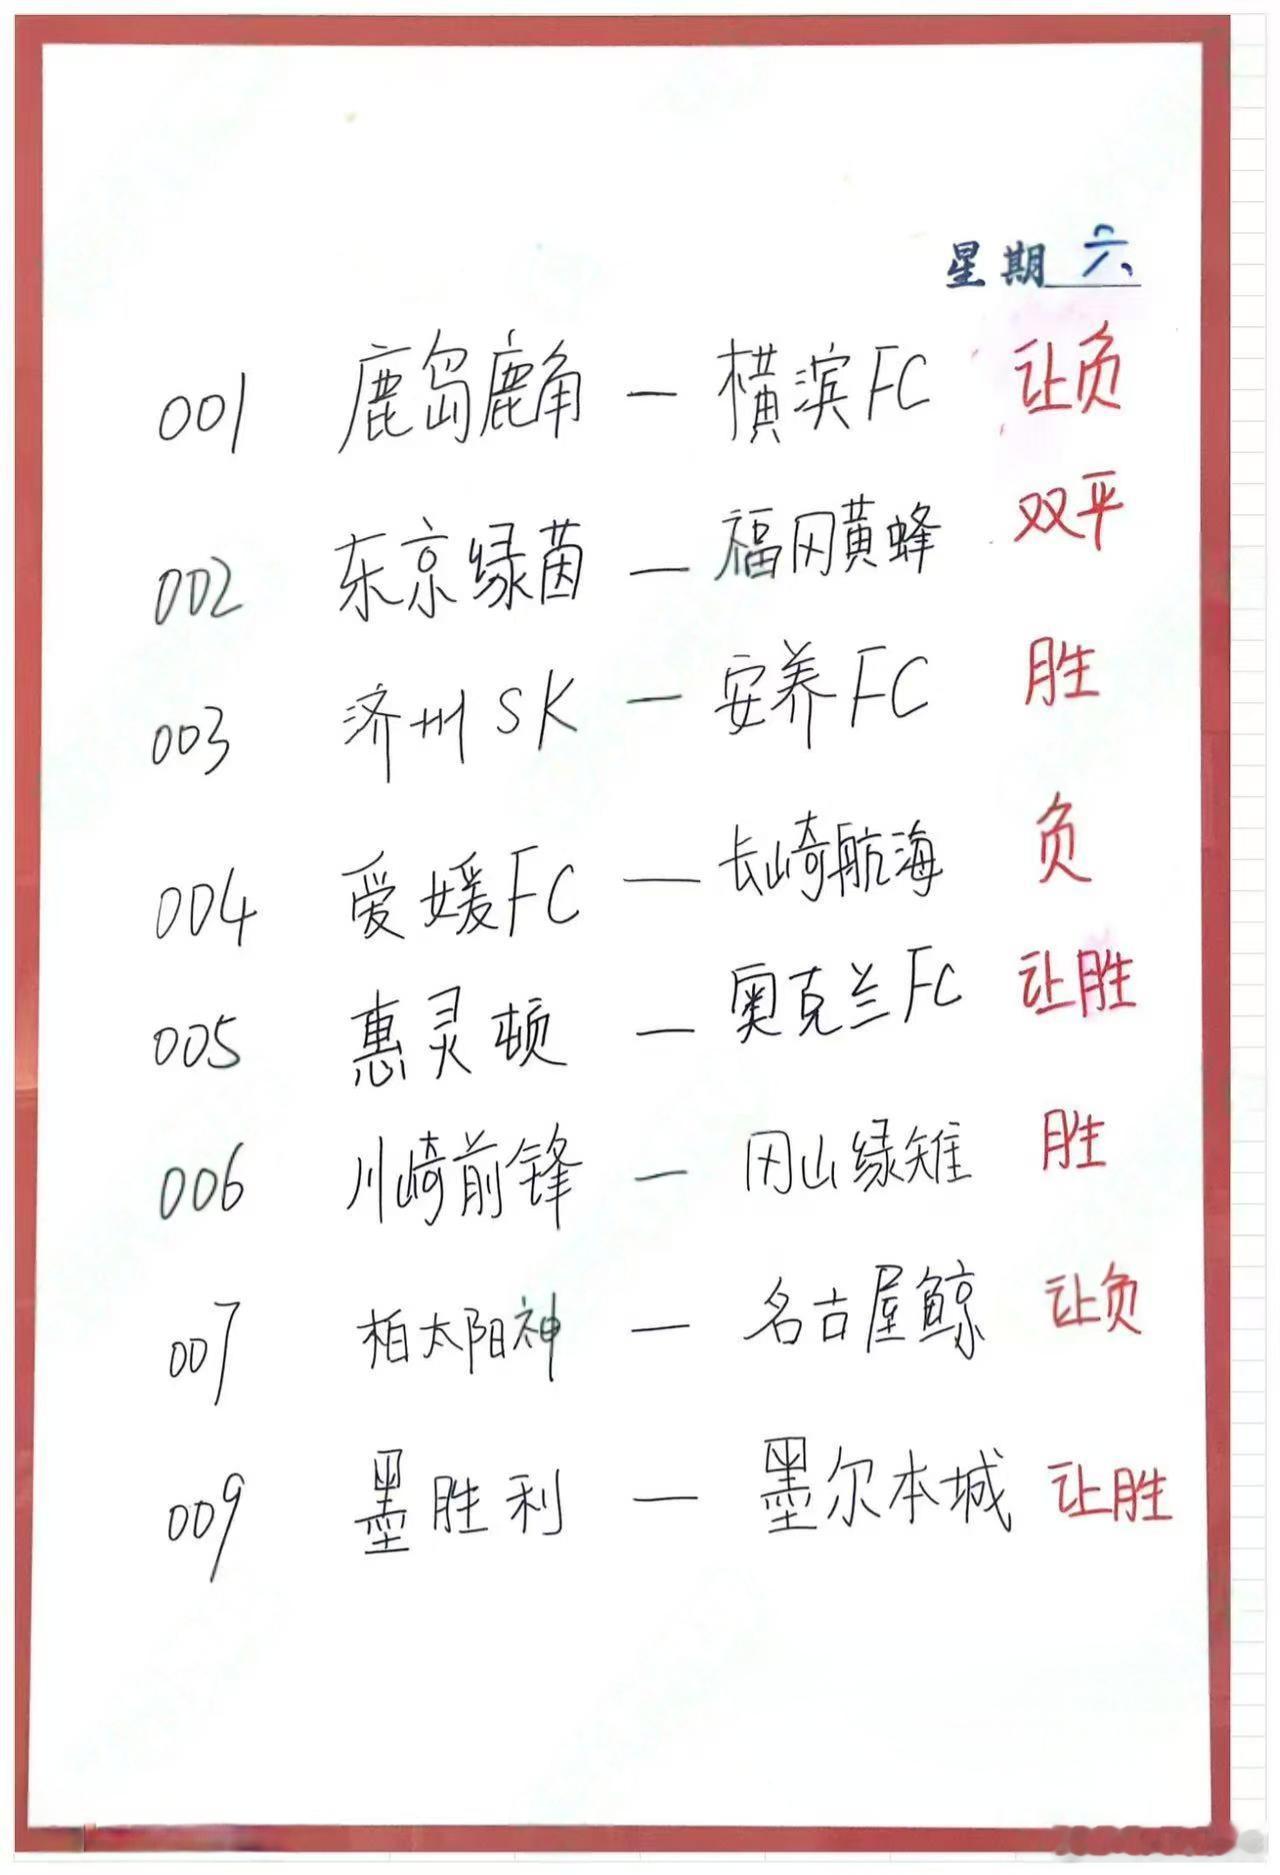 星期六
001 鹿岛鹿角 — 横滨FC 让负
002 东京绿茵 — 福冈黄蜂 双平
003 济州SK — 安养FC 胜
004 爱媛FC — 长崎航海 负
005 惠灵顿 — 奥克兰FC 让胜
006 川崎前锋 — 冈山绿雉 胜
007 柏太阳神 — 名古屋鲸 让负
009 墨胜利 — 墨尔本城 让胜